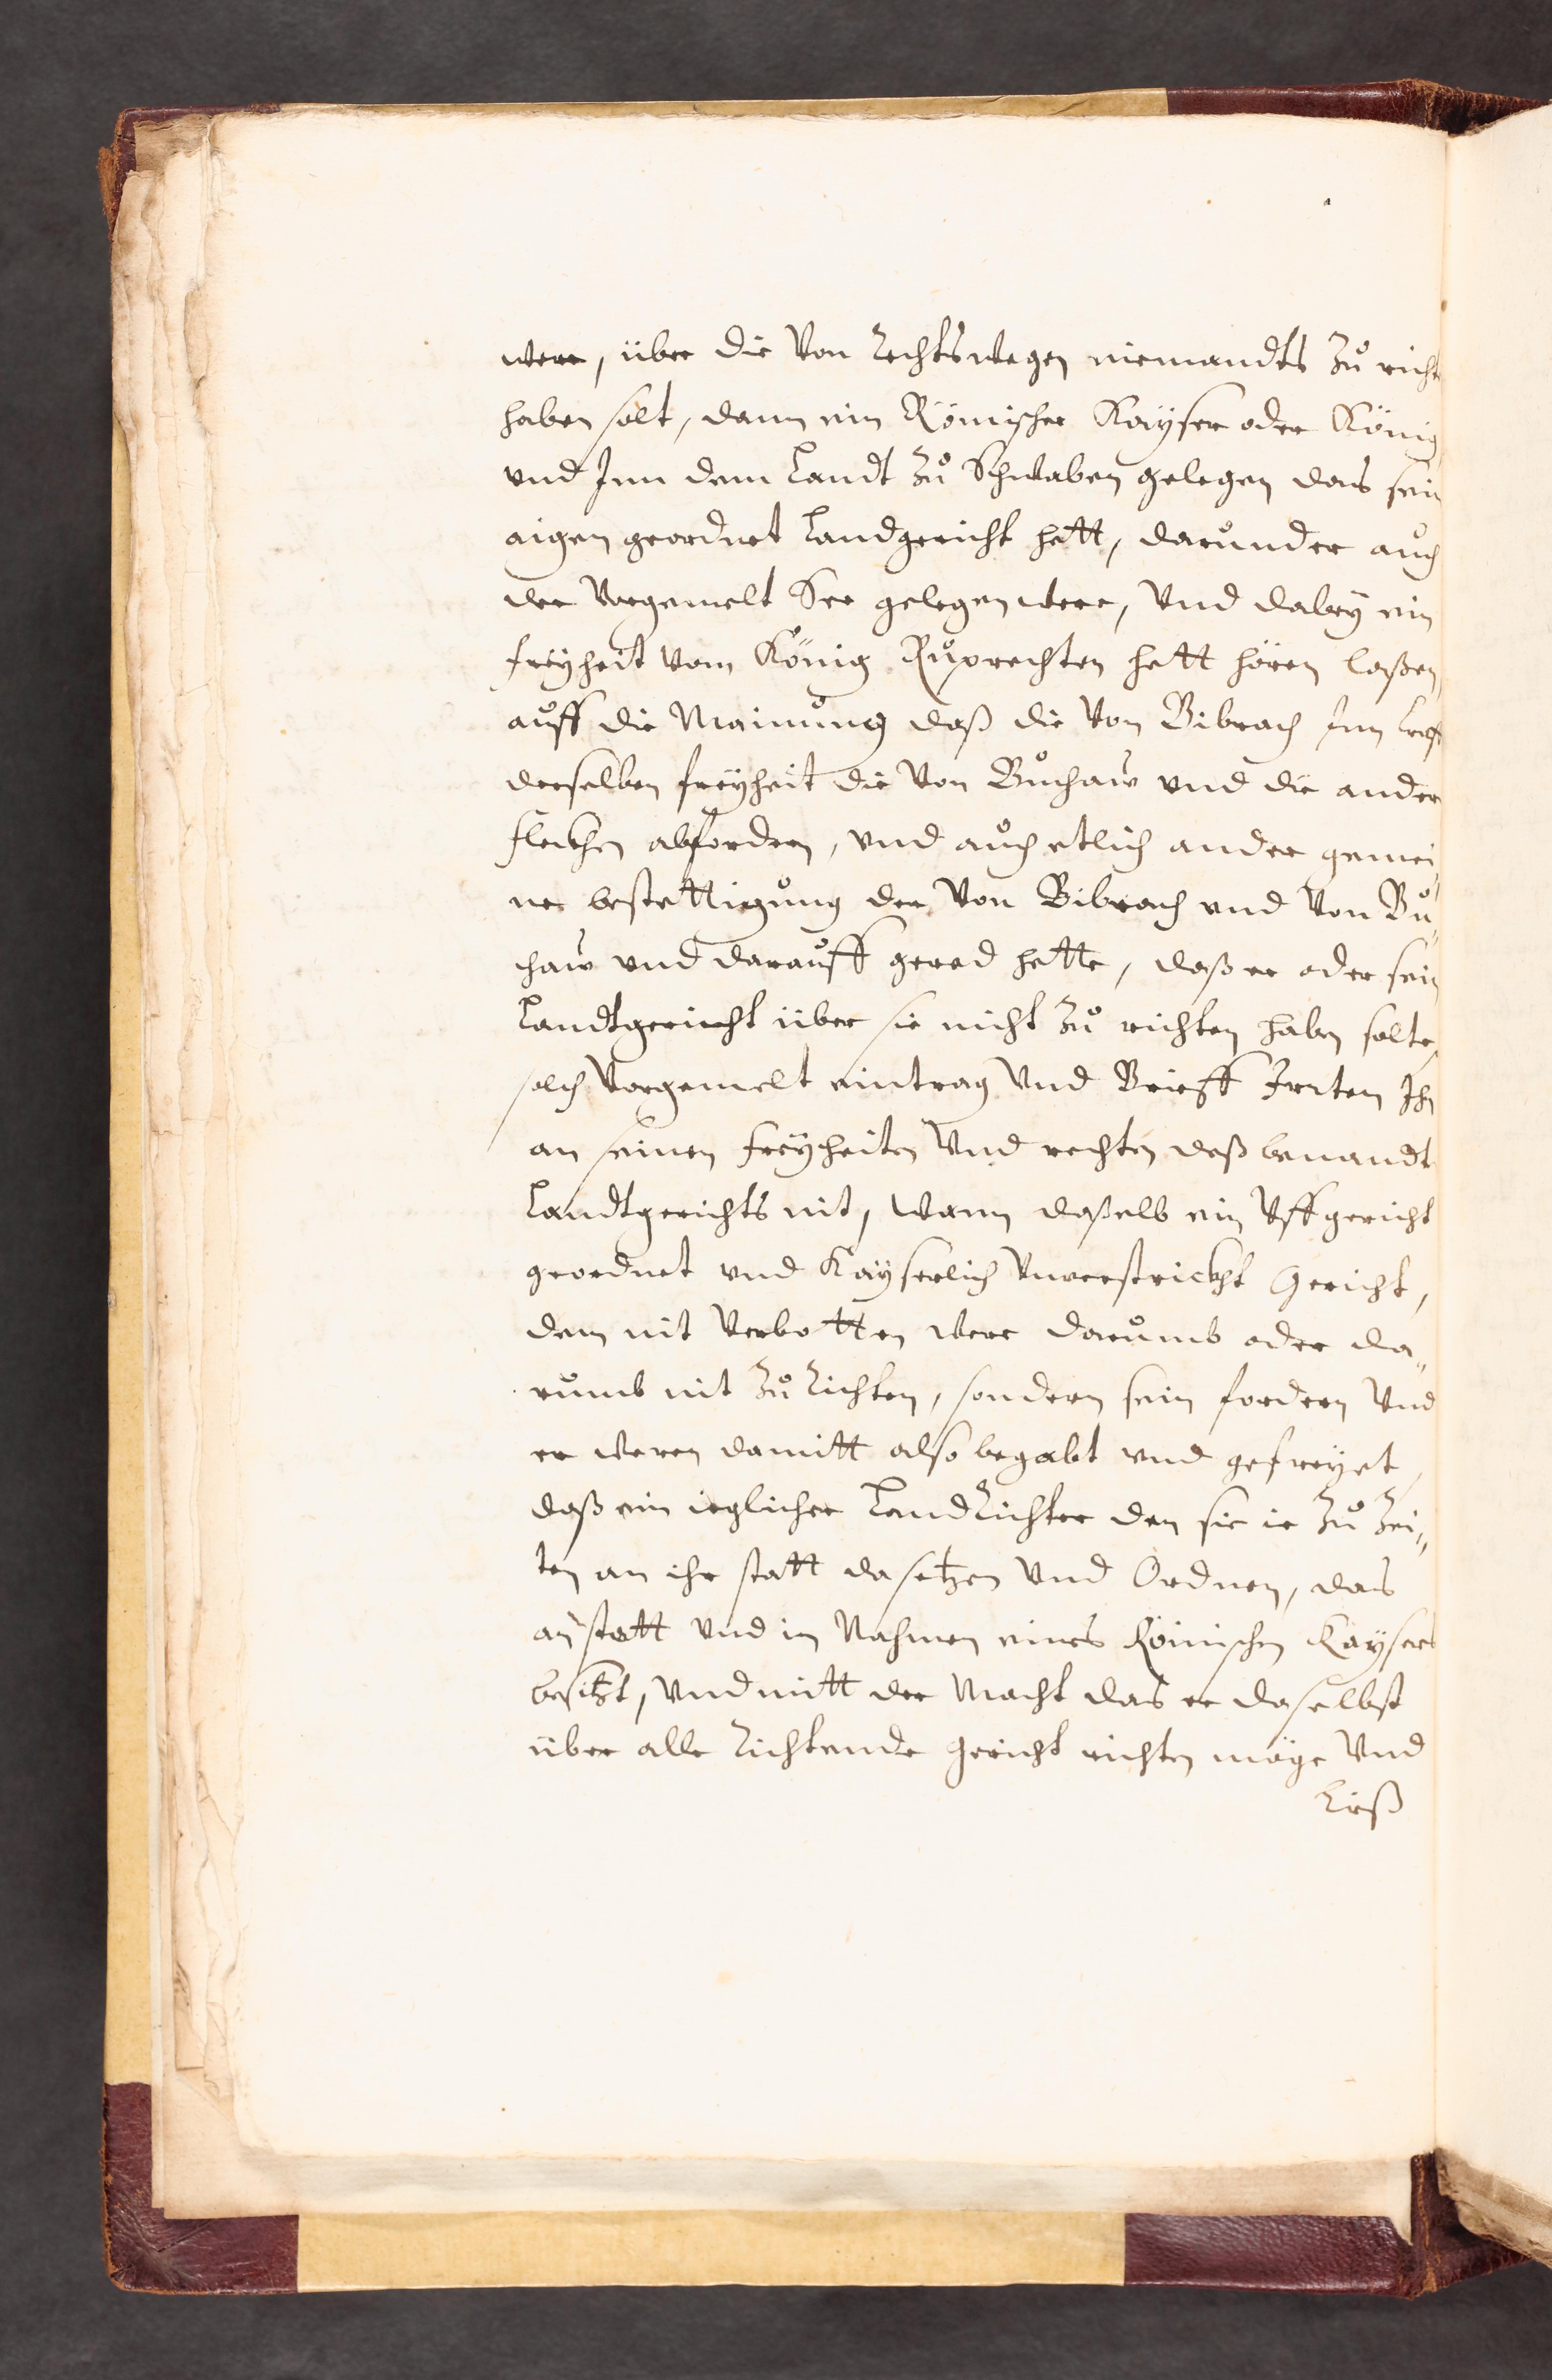 were, über die Von Rechtswegen niemandts Zu richt
haben solt, dann ein Römischer Kayser oder König
vnd Inn dem Landt Zu Schwaben gelegen das sein
aigen geordnet Landgericht hett, darunder auch
der Vorgemelt See gelegen were, Vnd dabey ein
freyheit vom König Ruprechten hett hören laßen
auff die Mainung daß die Von Bibrach Inn krafft
derselben freyheit die Von Buchaw vnd die ander
fleckhen abforderen, vnd auch etlich ander gemei„
ne bestettigung der Von Bibrach vnd Von Bu„
chaw vnd darauff gered hette, daß er oder sein
Landtgericht über sie nicht Zu richten haben solte,
solch Vorgemelt eintrag Vnd Brieff Irrten Ihn
an seinen freyheiten Vnd rechten deß benandt
Landtgerichts nit, Wann daßelb ein Vffgericht
geordnet vnd Kayserlich Vnverstrickht Gericht,
dem nit Verbotten were darumb oder da„
rumb nit Zu Richten, sondern sein fordern Vnd
er weren damitt also begabt vnd gefreyet,
daß ein ieglicher LandRichter den sie ie Zu Zei„
ten an ihr statt da setzen Vnd Ordnen, das
anstatt Vnd in Nahmen eines Römischen Kaysers
besitzt, Vnd mitt der Macht das er daselbst
über alle Richtende Gericht richten möge Vnd
Ließ